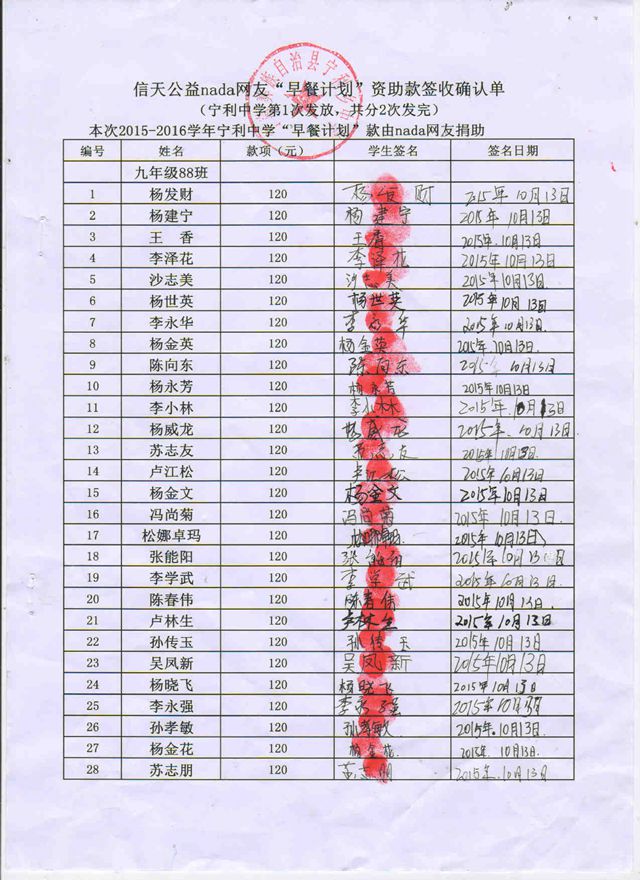 信天公益nada网友“早餐计划”资助款签收确认单
（宁利中学第1次发放，共分2次发完）
本次2015-2016学年宁利中学“早餐计划”款由nada网友捐助
编号 姓名 款项（元） 学生签名 签名日期
九年级88班
1 杨发财 120 杨发财 2015年10月13日
2 杨建宁 120 杨建宁 2015年10月13日
3 王香 120 王香 2015年10月13日
4 李泽花 120 李泽花 2015年10月13日
5 沙志美 120 沙志美 2015年10月13日
6 杨世英 120 杨世英 2015年10月13日
7 李永华 120 李永华 2015年10月13日
8 杨金英 120 杨金英 2015年10月13日.
9 陈向东 120 陈向东 10月13日
10 杨永芳 120 杨永芳 2015年10月13日
11 李小林 120 李小林 2015年10月13日
12 杨威龙 120 杨威龙 2015年.10月13日
13 苏志友 120 苏志友 2015年10月13日
14 卢江松 120 卢江松 2015年10月13日
15 杨金文 120 杨金文 2015年10月13日
16 冯尚菊 120 冯尚菊 2015年10月13日.
17 松娜卓玛 120 2015年10月13日
18 张能阳 120 张能阳 2015年10月13日
19 李学武 120 李学武 2015年10月13日.
20 陈春伟 120 陈春伟 2015年10月13日
21 卢林生 120 卢林生 2015年10月13日
22 孙传玉 120 孙传玉 2015年10月13日
23 吴凤新 120 吴凤新 2015年10月13日
24 杨晓飞 120 杨晓飞 2015年10月13日
25 李永强 120 李永强 2015年10月
26 孙孝敏 120 孙孝敏 2015年.10月13日.
27 杨金花 120 杨金花 2015年10月13日.
28 苏志朋 120 苏志朋 2015年.10月13日
自治县宁利